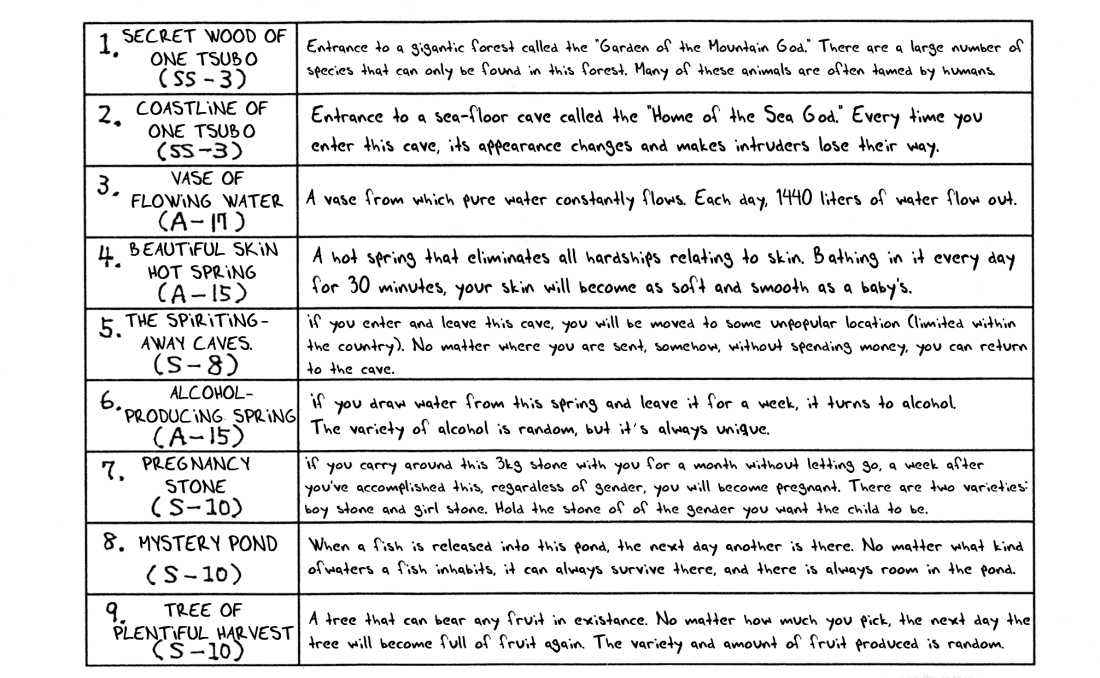 1. SECRET WOOD OF
ONE TSUBO
(SS-3)
Entrance to a gigantic forest called the "Garden of the Mountain God." There are a large number of
species that can only be found in this forest. Many of these animals are often tamed by humans.
2. COASTLINE OF
ONE TSUBO
(SS-3)
Entrance to a sea-floor cave called the "Home of the Sea God." Every time you
enter this cave, its appearance changes and makes intruders lose their way.
3. VASE OF
FLOWING WATER
(A-17)
A vase from which pure water constantly flows. Each day, 1440 liters of water flow out.
4. BEAUTIFUL SKIN
HOT SPRING
(A-15)
A hot spring that eliminates all hardships relating to skin. Bathing in it every day
for 30 minutes, your skin will become as soft and smooth as a baby's.
5. THE SPIRITING-
AWAY CAVES.
(S-8)
if you enter and leave this cave, you will be moved to some unpopular location (limited within
the country). No matter where you are sent, somehow, without spending money, you can return
to the cave.
6. ALCOHOL-
PRODUCING SPRING
(A-15)
if you draw water from this spring and leave it for a week, it turns to alcohol.
The variety of alcohol is random, but it's always unique.
7. PREGNANCY
STONE
(S-10)
if you carry around this 3kg stone with you for a month without letting go, a week after
you've accomplished this, regardless of gender, you will become pregnant. There are two varieties:
boy stone and girl stone. Hold the stone of of the gender you want the child to be.
8. MYSTERY POND
(S-10)
When a fish is released into this pond, the next day another is there. No matter what kind
ofwaters a fish inhabits, it can always survive there, and there is always room in the pond.
9. TREE OF
PLENTIFUL HARVEST
(S-10)
A tree that can bear any fruit in existance. No matter how much you pick, the next day the
tree will become full of fruit again. The variety and amount of fruit produced is random.